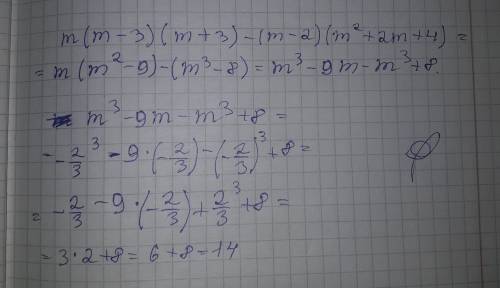 m(m-3)(m+3)-(m-2)(m²+2m+4)=
=m(m²-9)-(m³-8)=m³-9m-m³+8.
m³-9m-m³+8=
--2/3³-9·(-2/3)-(-2/3)³+8=
=-2/3-9·(-2/3)+2/3³+8=
=3·2+8=6+8=14